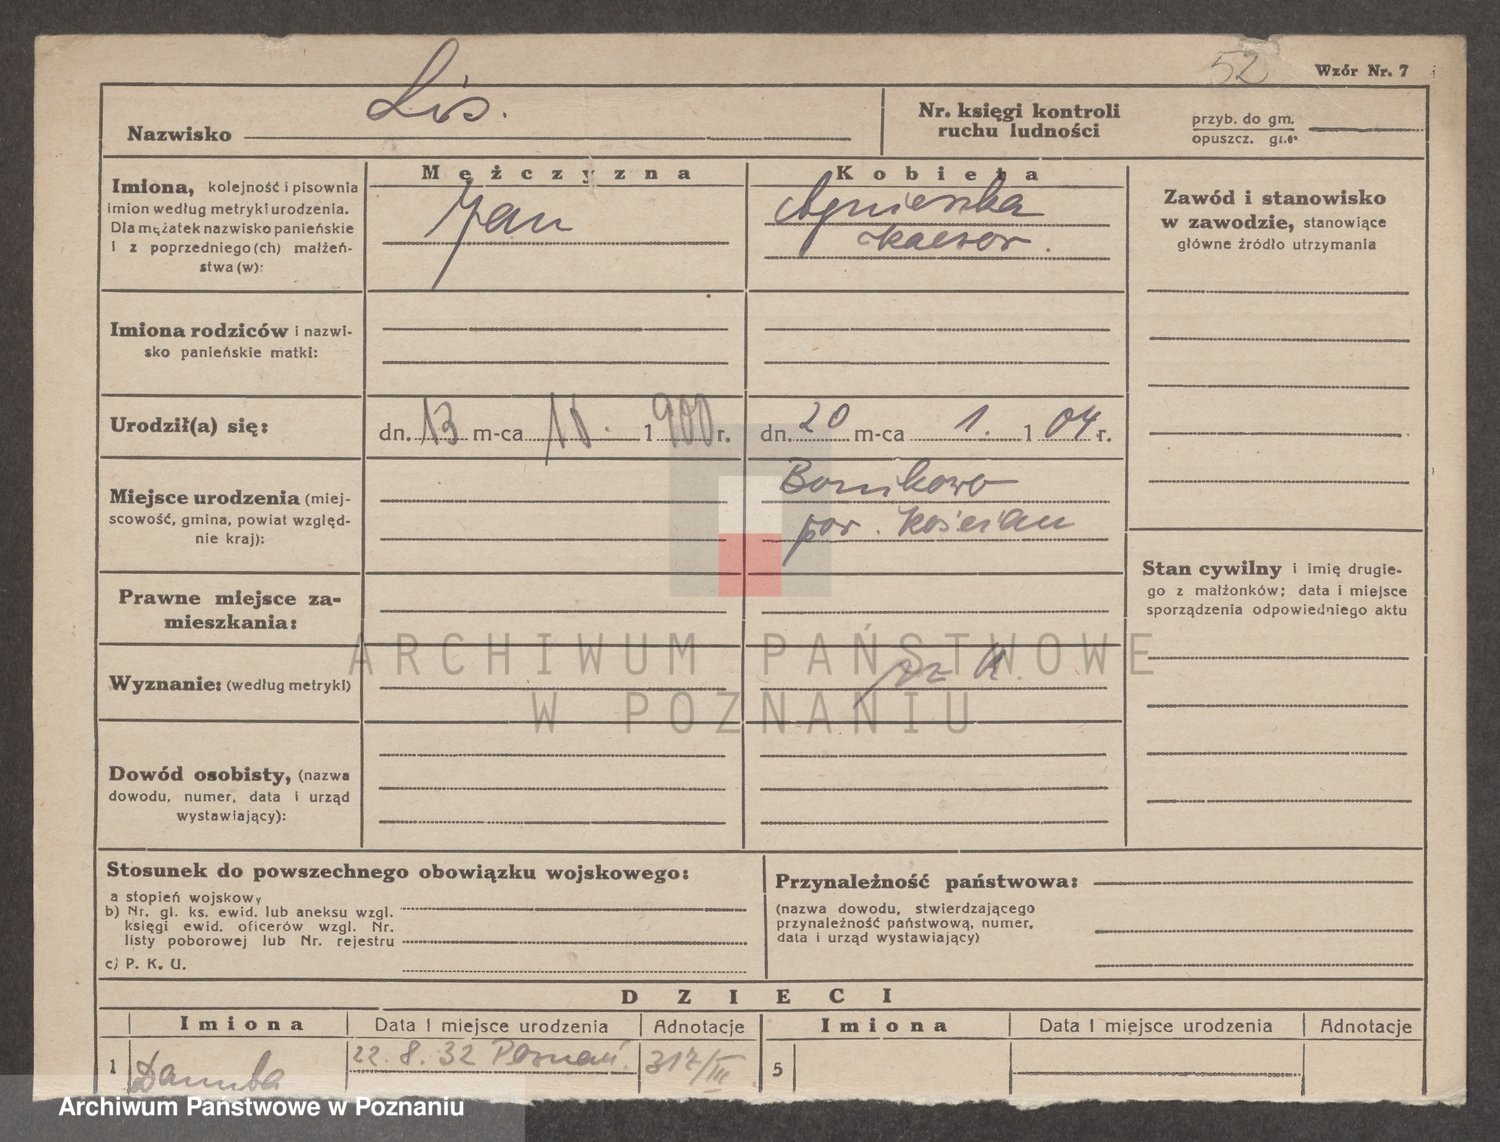 52
Wzór Nr. 7
Nazwisko Lis.
Nr. księgi kontroli
ruchu ludności
przyb. do gm.
opuszcz. gm.
Mężczyzna
Kobieta
Imiona, kolejność i pisownia
imion według metryki urodzenia.
Dla mężatek nazwisko panieńskie
i z poprzedniego(ch) małżeń-
stwa(w):
Jan
Agnieszka
Kaczor.
Zawód i stanowisko
w zawodzie, stanowiące
główne źródło utrzymania
Imiona rodziców i nazwi-
sko panieńskie matki:
Urodził(a) się:
dn. 13 m-ca 11. 1900 r.
dn. 20 m-ca 1. 1 04 r.
Miejsce urodzenia (miej-
scowość, gmina, powiat względ-
nie kraj):
Bonikowo
pow. Kościan
Stan cywilny i imię drugie-
go z małżonków; data i miejsce
sporządzenia odpowiedniego aktu
Prawne miejsce za-
mieszkania:
Wyznanie: (według metryki)
rz K.
Dowód osobisty, (nazwa
dowodu, numer, data i urząd
wystawiający):
Stosunek do powszechnego obowiązku wojskowego:
a stopień wojskowy
b) Nr. gl. ks. ewid. lub aneksu wzgl.
księgi ewid. oficerów wzgl. Nr.
listy poborowej lub Nr. rejestru
c) P. K. U.
Przynależność państwowa:
(nazwa dowodu, stwierdzającego
przynależność państwową, numer,
data i urząd wystawiający)
DZIECI
Imiona Data i miejsce urodzenia Adnotacje
Imiona Data i miejsce urodzenia Adnotacje
1 Danuta 22.8.32 Poznań. 317/III
5
ARCHIWUM PAŃSTWOWE
W POZNANIU
Archiwum Państwowe w Poznaniu